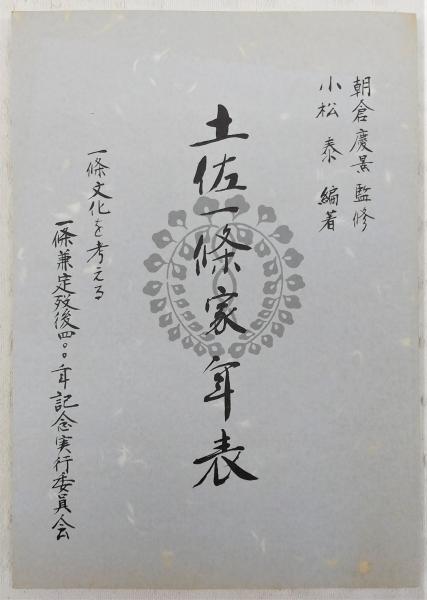 朝倉慶景監修
小松泰編著
土佐一條家年表
一條文化を考える
一條兼定歿後四〇〇年記念実行委員会